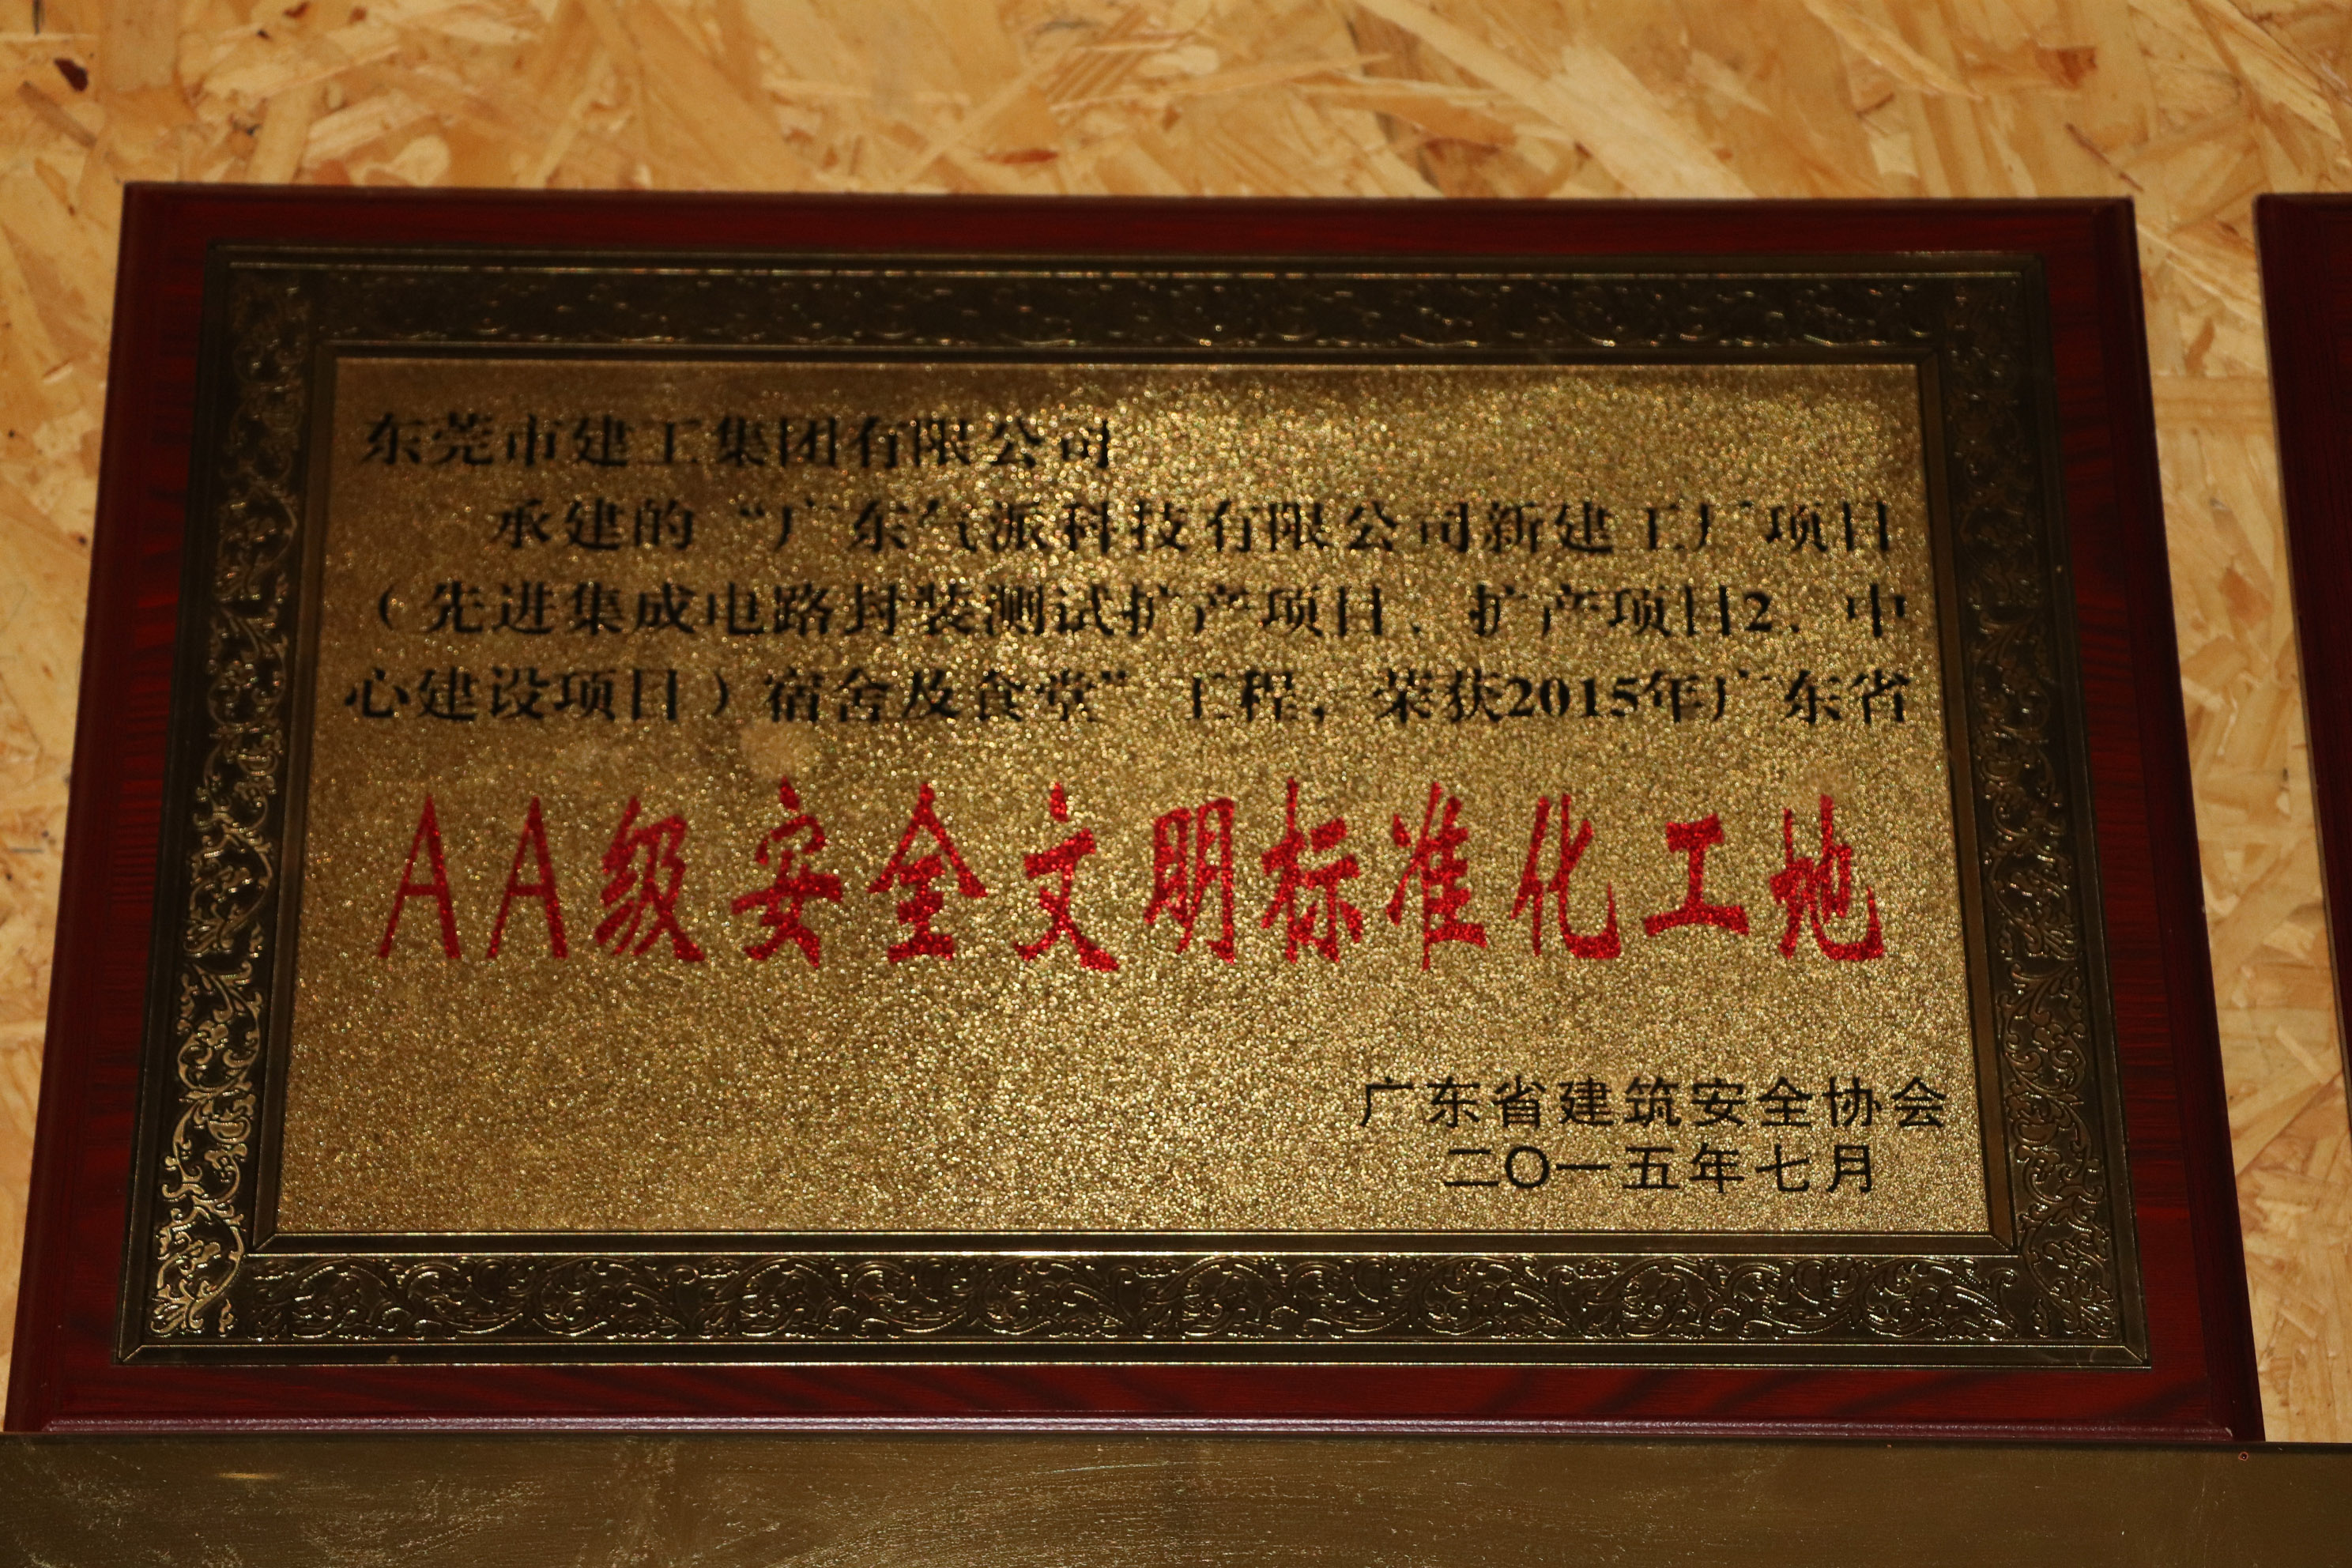 东莞市建工集团有限公司
承建的“广东气派科技有限公司新建工厂项目
（先进集成电路封装测试扩产项目、扩产项目2、中
心建设项目）宿舍及食堂”工程，荣获2015年广东省
AA级安全文明标准化工地
广东省建筑安全协会
二〇一五年七月